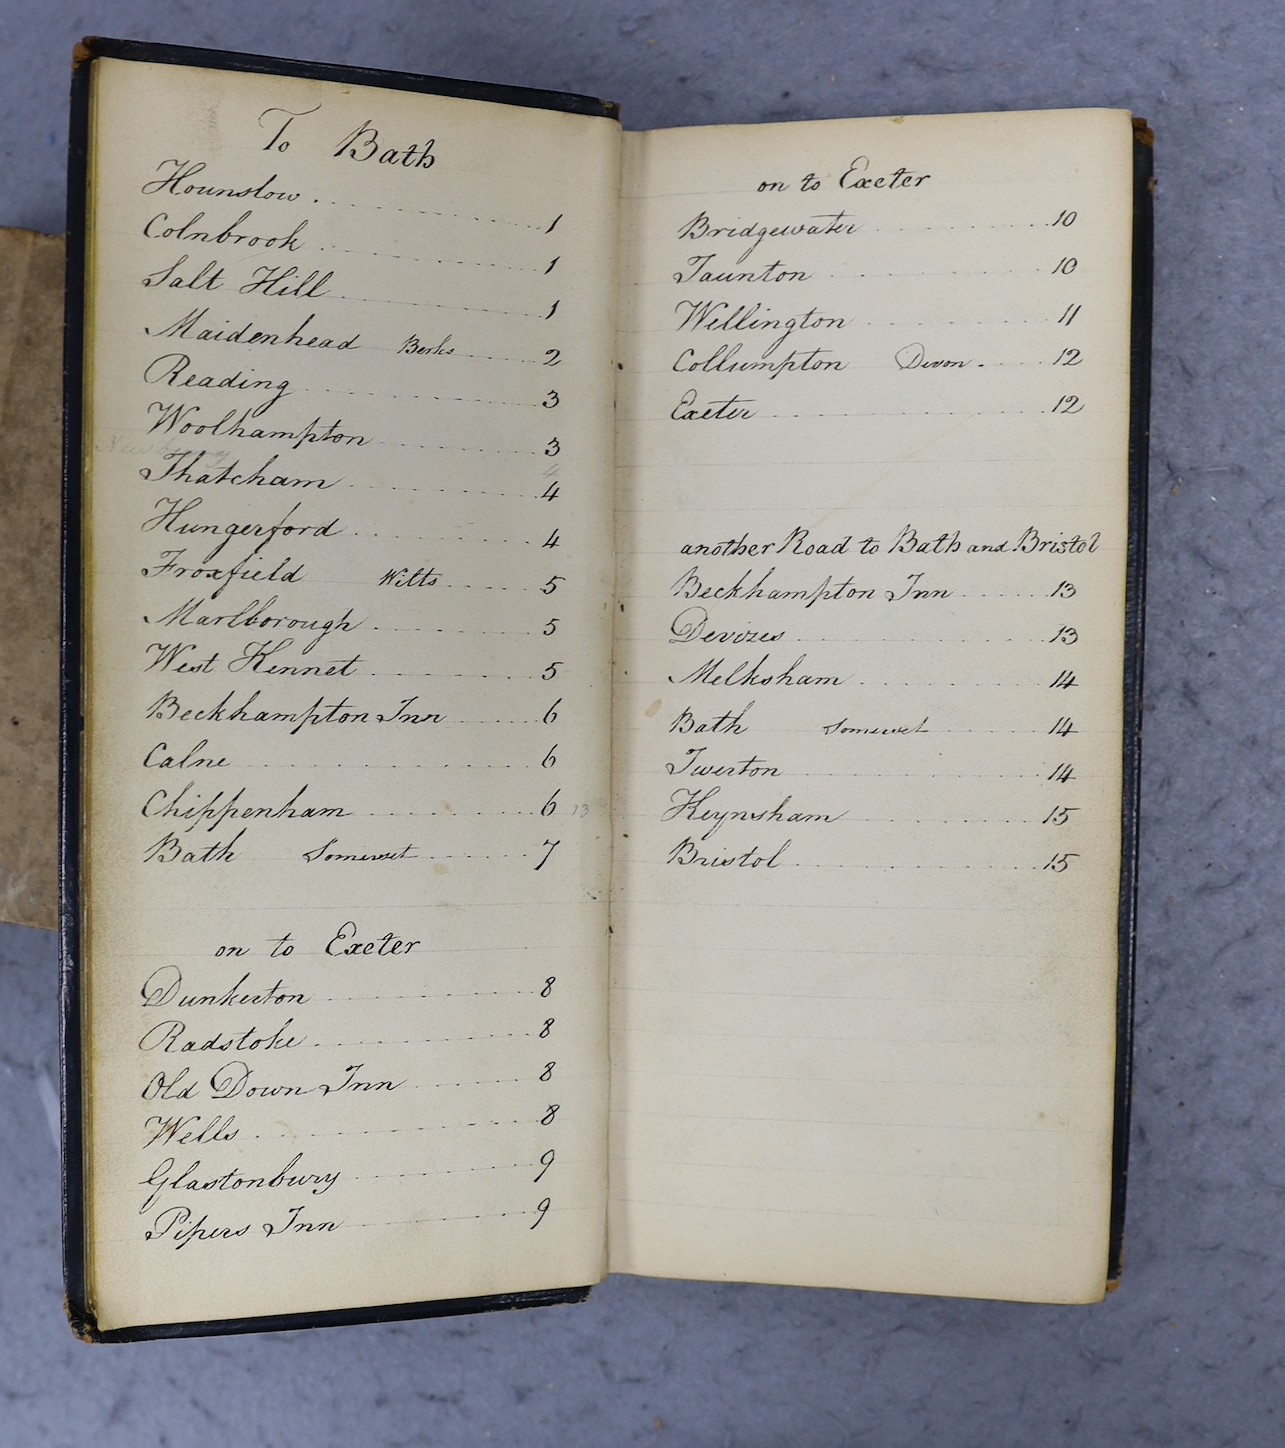 To Bath
Hounslow . . . . . . . . . . 1
Colnbrook . . . . . . . . . . 1
Salt Hill . . . . . . . . . . 1
Maidenhead Berks . . . . . 2
Reading . . . . . . . . . . 3
Woolhampton . . . . . . . . 3
Thatcham . . . . . . . . . . 4
Hungerford . . . . . . . . . 4
Froxfield Wilts . . . . . 5
Marlborough . . . . . . . . 5
West Kennet . . . . . . . . 5
Beckhampton Inn . . . . . 6
Calne . . . . . . . . . . . . 6
Chippenham . . . . . . . . . 6 13
Bath Somerset . . . . . . 7
on to Exeter
Dunkerton . . . . . . . . . . 8
Radstoke . . . . . . . . . . 8
Old Down Inn . . . . . . 8
Wells . . . . . . . . . . . . 8
Glastonbury . . . . . . . . 9
Pipers Inn . . . . . . . . 9
on to Exeter
Bridgewater . . . . . . . . 10
Taunton . . . . . . . . . . 10
Wellington . . . . . . . . 11
Collumpton Devon . . . . 12
Exeter . . . . . . . . . . . 12
another Road to Bath and Bristol
Beckhampton Inn . . . . . 13
Devizes . . . . . . . . . . 13
Melksham . . . . . . . . . 14
Bath Somerset . . . . . . 14
Twerton . . . . . . . . . . 14
Keynsham . . . . . . . . . 15
Bristol . . . . . . . . . . 15